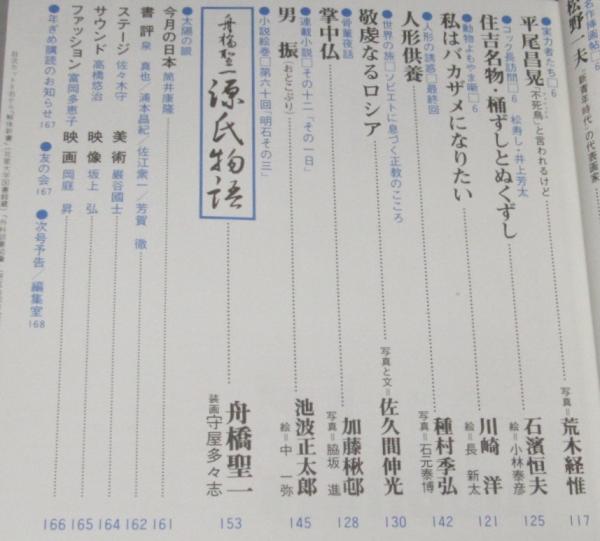 名作挿画帖□6
松野一夫 "新青年時代"の代表画家
●実力者たち□6
平尾昌晃 "不死鳥"と言われるけど
写真=荒木経惟 117
●コック長訪問□6 松寿し・井上芳太
住吉名物・桶ずしとぬくずし
石濱恒夫 絵=小林泰彦 125
●動物よもやま噺□6
私はバカザメになりたい
川崎 洋 絵=長 新太 121
●人形の誘惑□最終回
人形供養
種村季弘 写真=石元泰博 142
●世界の旅□ソビエトに息づく正教のこころ
敬虔なるロシア
写真と文=佐久間伸光 130
●骨董夜話
掌中仏
加藤楸邨 写真=脇坂 進 128
●連載小説□その十二「その一日」
男 振(おとこぶり)
池波正太郎 絵=中 一弥 145
●小説絵巻□第六十回「明石その三」
舟橋聖一 源氏物語
舟橋聖一 装画 守屋多々志 153
●太陽の眼
今月の日本 筒井康隆 161
書評 泉 真也/浦本昌紀/佐江衆一/芳賀 徹 162
ステージ 佐々木守 美術 巖谷國士 164
サウンド 高橋悠治 映像 坂上 弘 165
ファッション 富岡多恵子 映画 岡庭 昇 166
●年ぎめ購読のお知らせ 167 ●友の会 167 ●次号予告/編集室 168